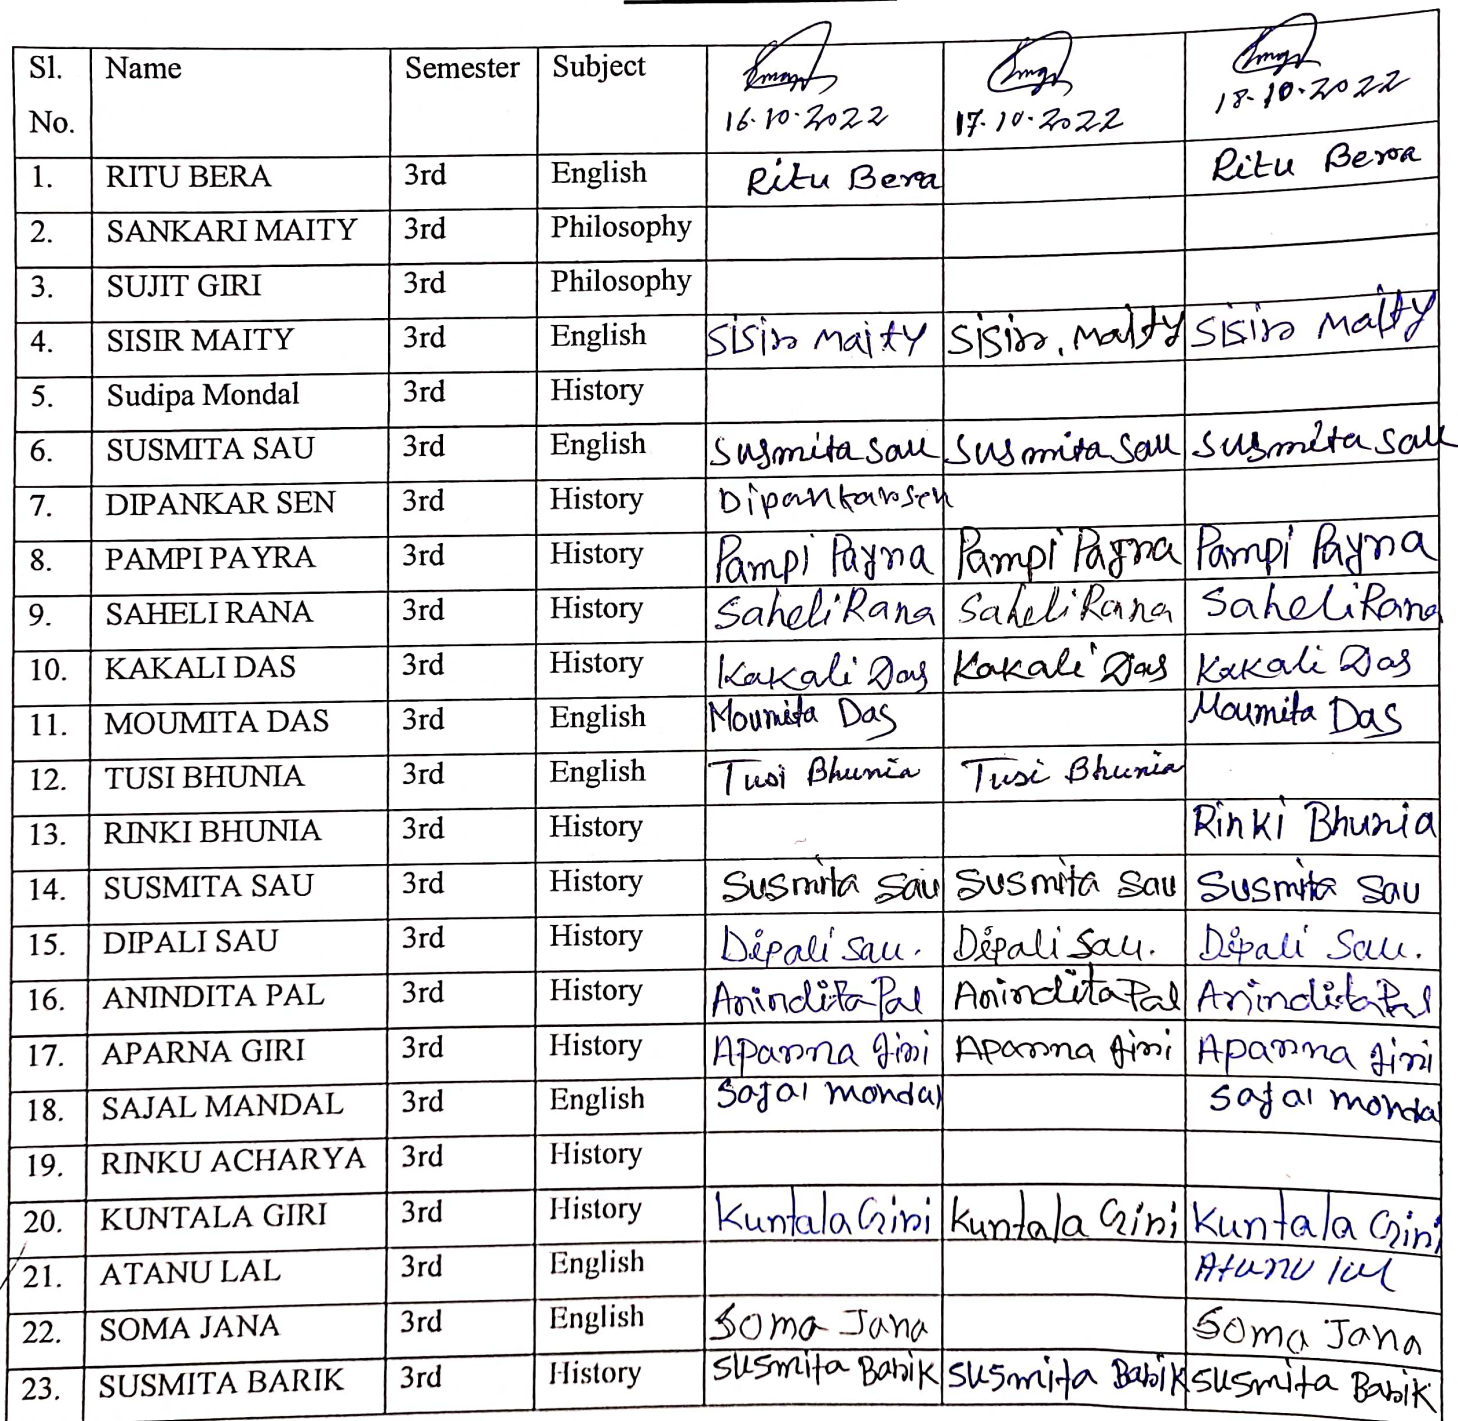 Sl. No. Name Semester Subject 16.10.2022 17.10.2022 18.10.2022
1. RITU BERA 3rd English Ritu Bera Ritu Bera
2. SANKARI MAITY 3rd Philosophy
3. SUJIT GIRI 3rd Philosophy
4. SISIR MAITY 3rd English Sisir Maity Sisir. Maity Sisir Maity
5. Sudipa Mondal 3rd History
6. SUSMITA SAU 3rd English Susmita Sau Susmita Sau Susmita Sau
7. DIPANKAR SEN 3rd History Dipankar Sen
8. PAMPI PAYRA 3rd History Pampi Payra Pampi Payra Pampi Payra
9. SAHELI RANA 3rd History Saheli Rana Saheli Rana Saheli Rana
10. KAKALI DAS 3rd History Kakali Das Kakali Das Kakali Das
11. MOUMITA DAS 3rd English Moumita Das Moumita Das
12. TUSI BHUNIA 3rd English Tusi Bhunia Tusi Bhunia
13. RINKI BHUNIA 3rd History Rinki Bhunia
14. SUSMITA SAU 3rd History Susmita Sau Susmita Sau Susmita Sau
15. DIPALI SAU 3rd History Dipali Sau. Dipali Sau. Dipali Sau.
16. ANINDITA PAL 3rd History Anindita Pal Anindita Pal Anindita Pal
17. APARNA GIRI 3rd History Aparna Giri Aparna Giri Aparna Giri
18. SAJAL MANDAL 3rd English Sajal mondal Sajal monda
19. RINKU ACHARYA 3rd History
20. KUNTALA GIRI 3rd History Kuntala Giri Kuntala Giri Kuntala Giri
21. ATANU LAL 3rd English Atanu lal
22. SOMA JANA 3rd English Soma Jana Soma Jana
23. SUSMITA BARIK 3rd History Susmita Barik Susmita Barik Susmita Barik